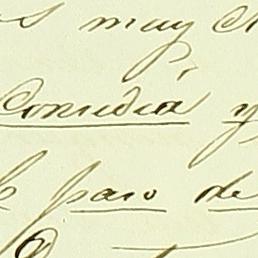 muy
Comedia y
paso de